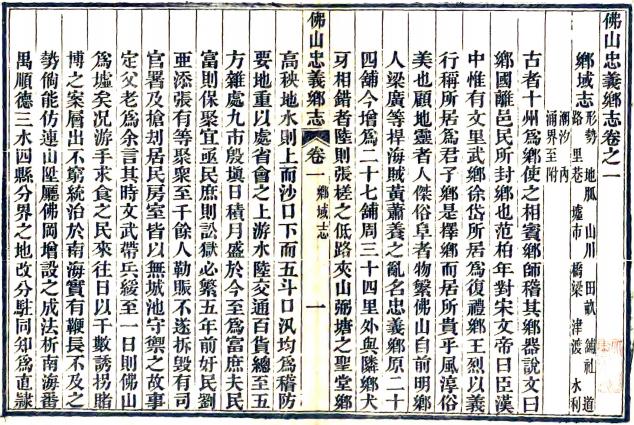 佛山忠義鄉志卷之一
鄉域志 形勢 地脈 山川 田畝 鋪社 道
路 里巷 墟市 橋梁 津渡 水利
潮汐 內
涌界至附
古者十州為鄉使之相賓鄉師稽其鄉器說文曰
鄉國離邑民所封鄉也范柏年對宋文帝曰臣漢
中惟有文里武鄉徐岱所居為復禮鄉王烈以義
行稱所居為君子鄉是擇鄉而居所貴乎風淳俗
美也顧地靈者人傑俗阜者物繁佛山自前明鄉
人梁廣等捍海賊黃蕭養之亂名忠義鄉原二十
四鋪今增為二十七鋪周三十四里外與隣鄉犬
牙相錯者陸則張槎之低路夾山弼塘之聖堂鄉
佛山忠義鄉志 卷一 鄉域志 一
高秧地水則上而沙口下而五斗口汛均為稽防
要地重以處省會之上游水陸交通百貨總至五
方雜處九市殷塡日積月盛於今至為富庶夫民
富則保聚宜亟民庶則訟獄必繁五年前奸民劉
亞添張有等聚衆至千餘人勒賑不遂拆毀有司
官署及搶刦居民房室皆以無城池守禦之故事
定父老為余言其時文武帶兵緩至一日則佛山
為墟矣况游手求食之民來往日以千數誘拐賭
博之案層出不窮統治於南海實有鞭長不及之
勢倘能仿連山陞廳佛岡增設之成法析南海番
禺順德三水四縣分界之地改分駐同知為直隷